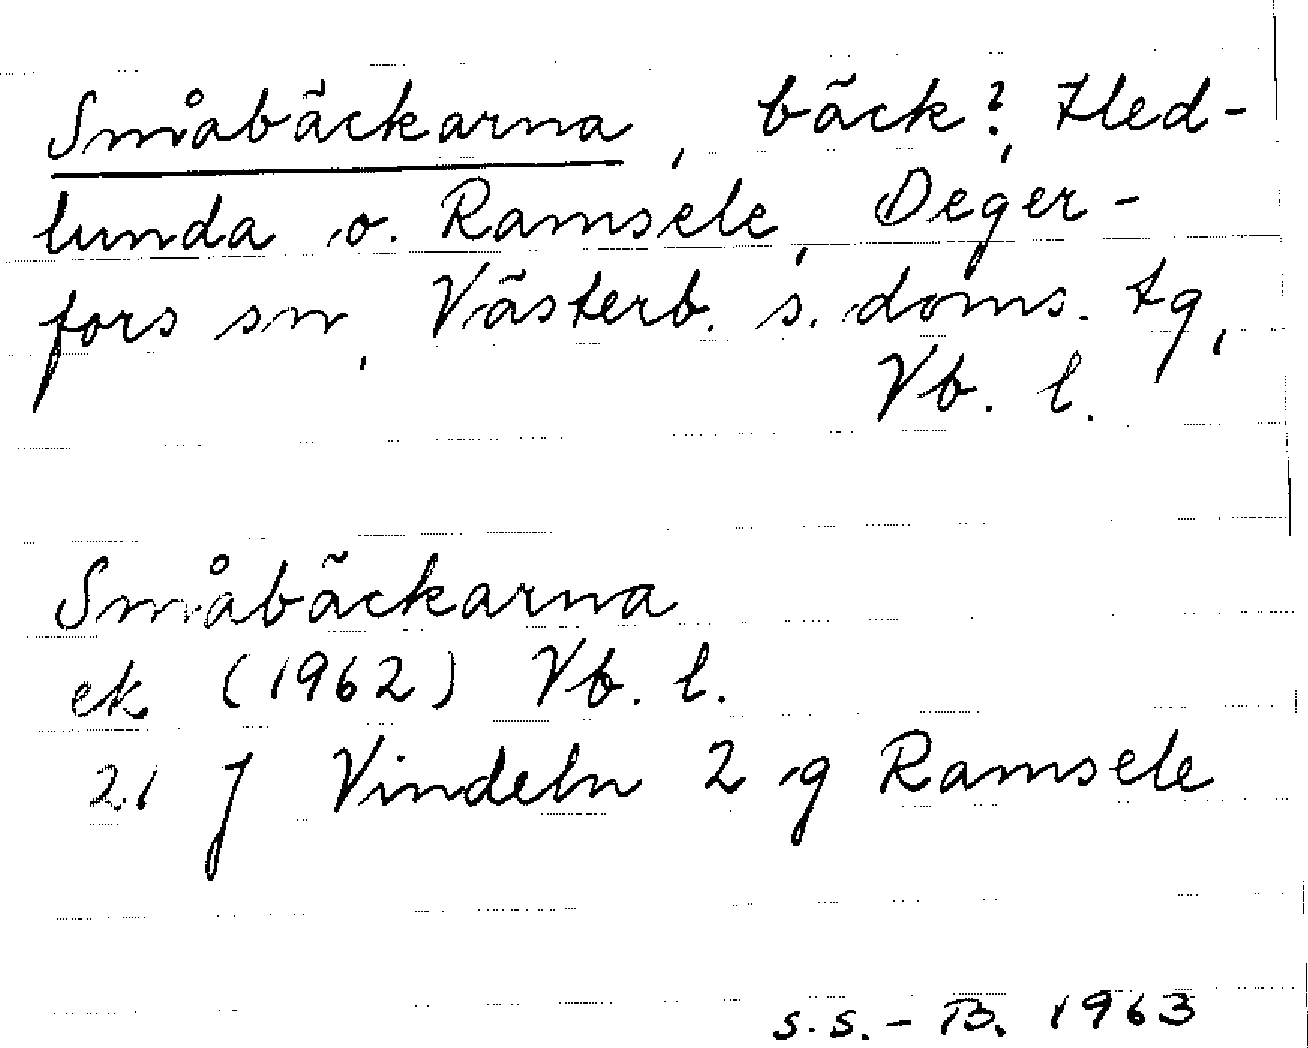 Småbäckarna, bäck?, Hed-
lunda o. Ramsele, Deger-
fors sn, Västerb. s. doms. tg,
Vb. l.
Småbäckarna
ek (1962) Vb. l.
21 J Vindeln 2 g Ramsele
S.S.-B. 1963